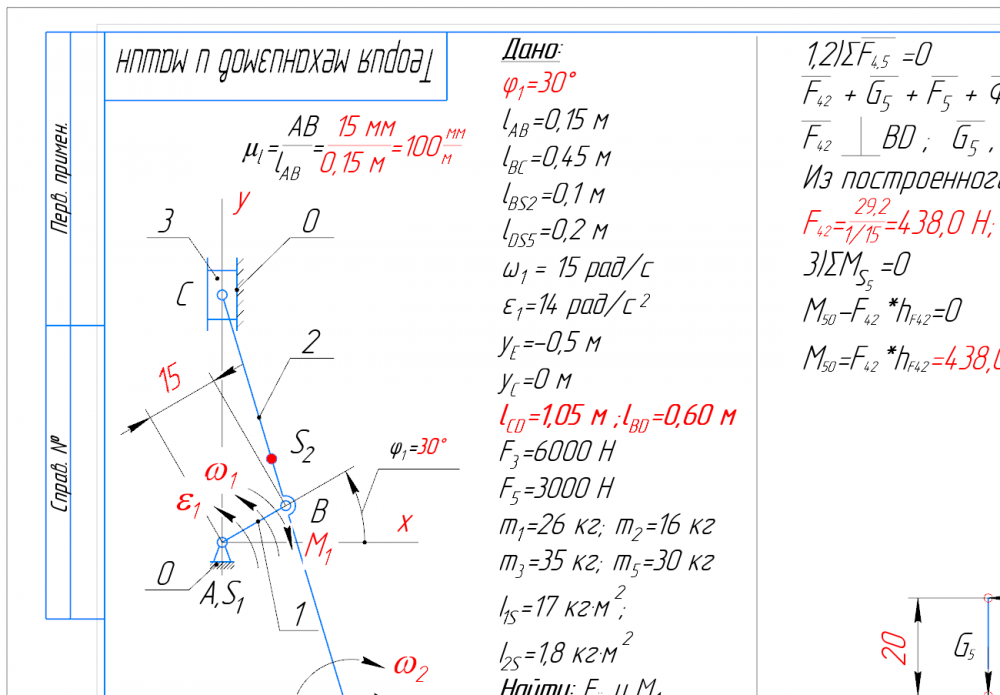 Теория механизмов и машин
Перв. примен.
Справ. №
μl = AB / lAB = 15 мм / 0,15 м = 100 мм/м
y
3
0
C
2
15
S2
φ1=30°
ω1
ε1
B
x
M1
0
A,S1
1
ω2
Дано:
φ1=30°
lAB=0,15 м
lBC=0,45 м
lBS2=0,1 м
lDS5=0,2 м
ω1 = 15 рад/с
ε1=14 рад/с²
yE=-0,5 м
yC=0 м
lCD=1,05 м ; lBD=0,60 м
F3=6000 Н
F5=3000 Н
m1=26 кг; m2=16 кг
m3=35 кг; m5=30 кг
I1S=17 кг·м²;
I2S=1,8 кг·м²
Найти: и M1
1,2)ΣF4,5=0
F42 + G5 + F5 +
F42 ⊥ BD ; G5 ,
Из построенного
F42= 29,2 / 1/15 =438,0 Н;
3)ΣMS5=0
M50-F42 *hF42=0
M50=F42 *hF42=438,0
20
G5